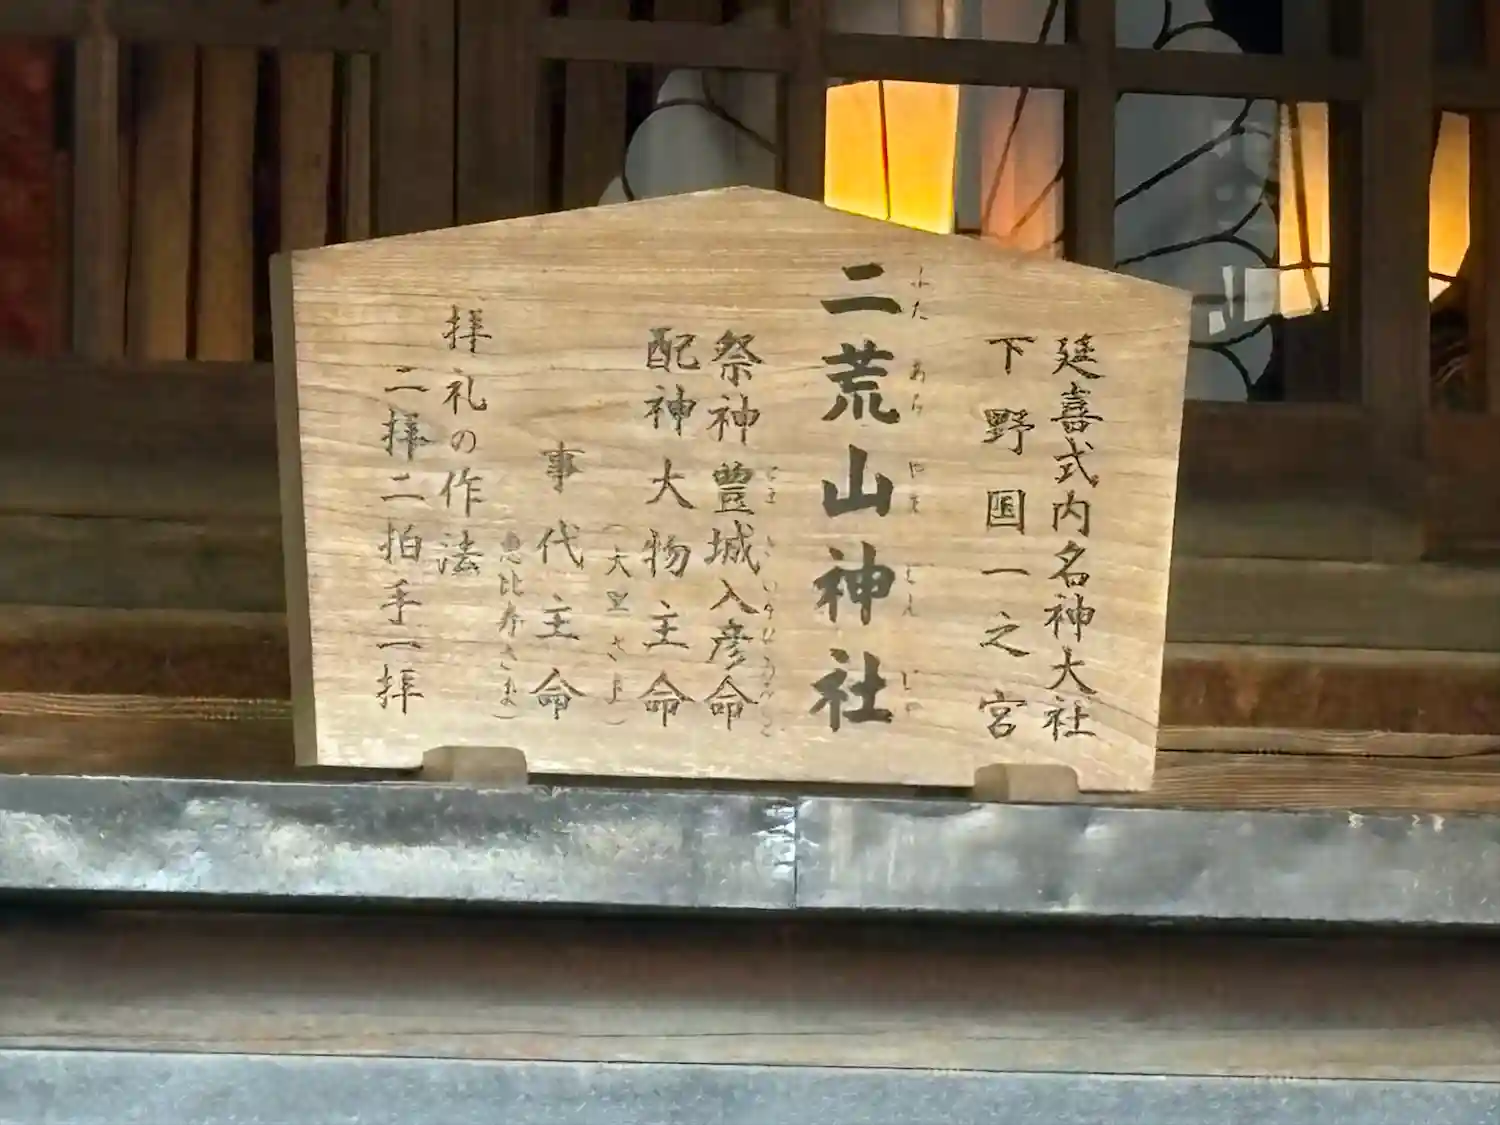 延喜式内名神大社
下野国一之宮
二荒山神社
ふたあらやまじんじゃ
祭神 豊城入彦命
とよきいりひこのみこと
配神 大物主命
(大黒さま)
事代主命
(恵比寿さま)
拝礼の作法
二拝二拍手一拝